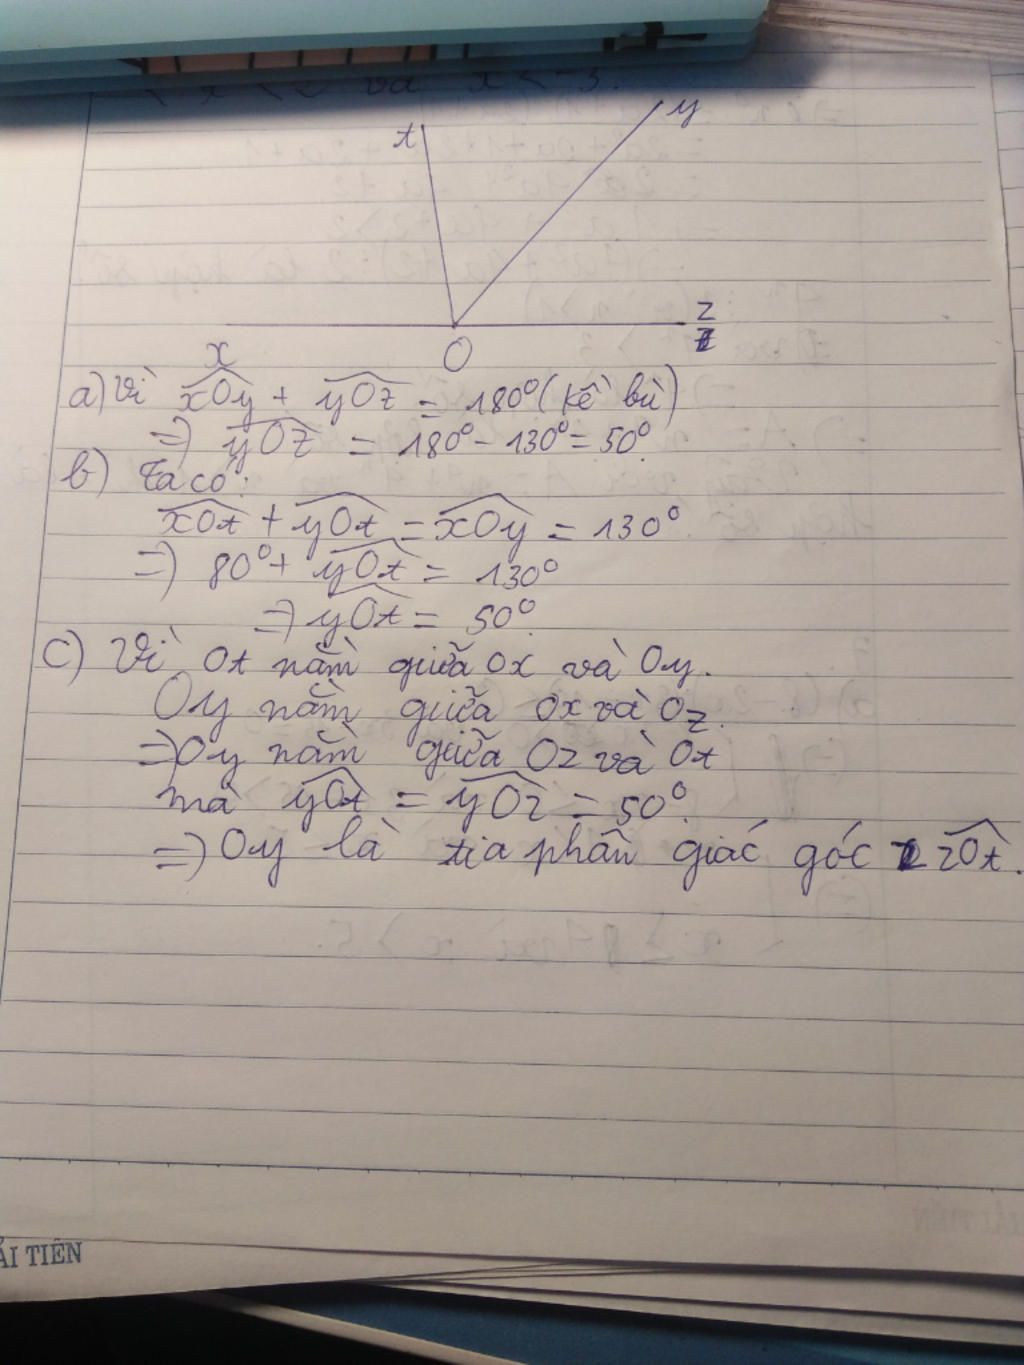 t
y
z
x
O
a) Vì xOy + yOz = 180⁰ (kề bù)
=> yOz = 180⁰ - 130⁰ = 50⁰.
b) Ta có:
xOt + yOt = xOy = 130⁰.
=> 80⁰ + yOt = 130⁰
=> yOt = 50⁰.
c) Vì Ot nằm giữa Ox và Oy.
Oy nằm giữa Ox và Oz.
=> Oy nằm giữa Oz và Ot
mà yOt = yOz = 50⁰.
=> Oy là tia phân giác góc zOt.
ẢI TIẾN